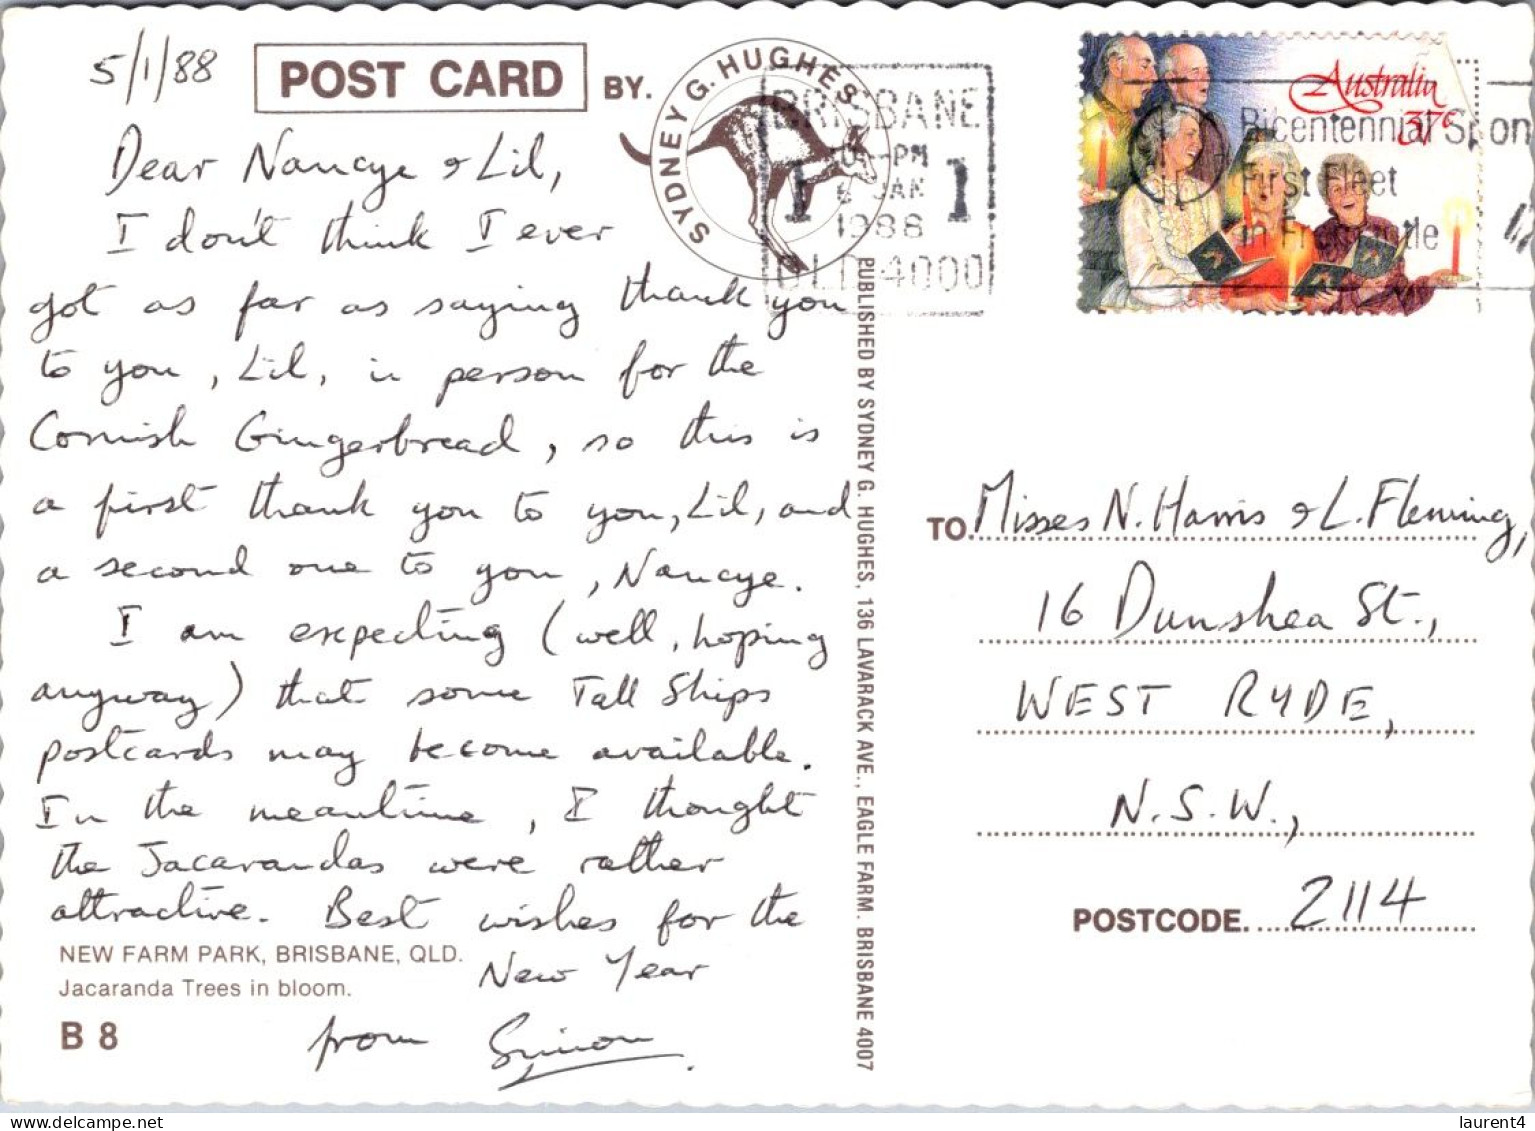 5/1/88
POST CARD BY.
SYDNEY G. HUGHES
Dear Nancye & Lil,
I don't think I ever
got as far as saying thank you
to you, Lil, in person for the
Cornish Gingerbread, so this is
a first thank you to you, Lil, and
a second one to you, Nancye.
I am expecting (well, hoping
anyway) that some Tall Ships
postcards may become available.
In the meantime, I thought
the Jacarandas were rather
attractive. Best wishes for the
New Year
from Simon
NEW FARM PARK, BRISBANE, QLD.
Jacaranda Trees in bloom.
B 8
PUBLISHED BY SYDNEY G. HUGHES, 136 LAVARACK AVE., EAGLE FARM. BRISBANE 4007
BRISBANE
-PM
1 6 JAN 1
1988
QLD 4000
Australia
37c
Bicentennial
First Fleet
in Fremantle
TO. Misses N. Harris & L. Fleming,
16 Dunshea St.,
WEST RYDE,
N.S.W.,
POSTCODE. 2114
laurent4